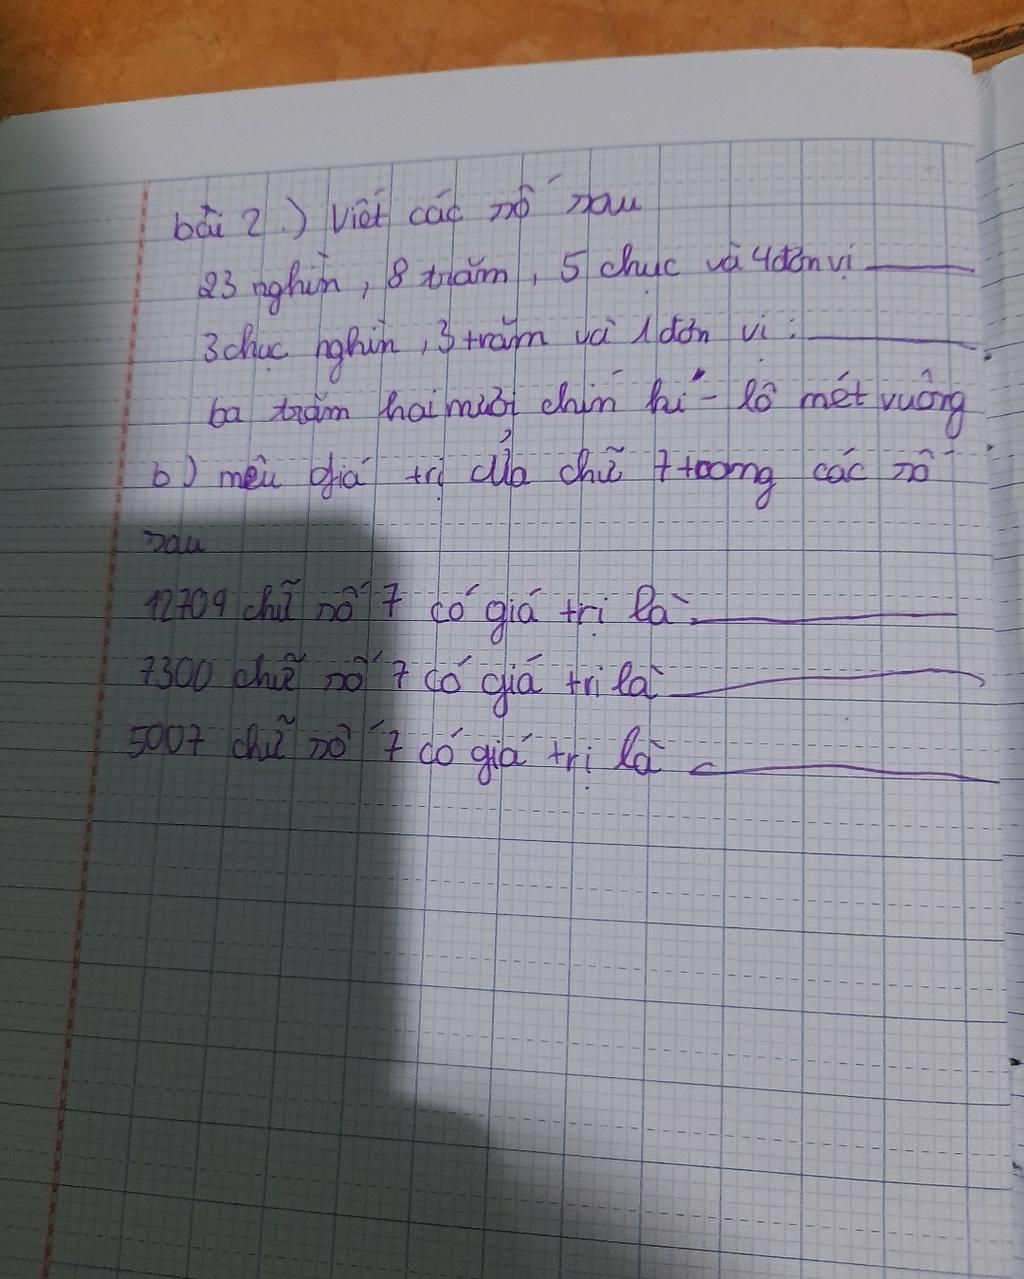 bài 2.) Viết các số sau
23 nghìn, 8 trăm, 5 chục và 4 đơn vị
3 chục nghìn, 3 trăm và 1 đơn vị :
ba trăm hai mươi chín ki - lô mét vuông
b) nêu giá trị của chữ 7 trong các số
sau
12709 chữ số 7 có giá trị là
7300 chữ số 7 có giá trị là
5007 chữ số 7 có giá trị là